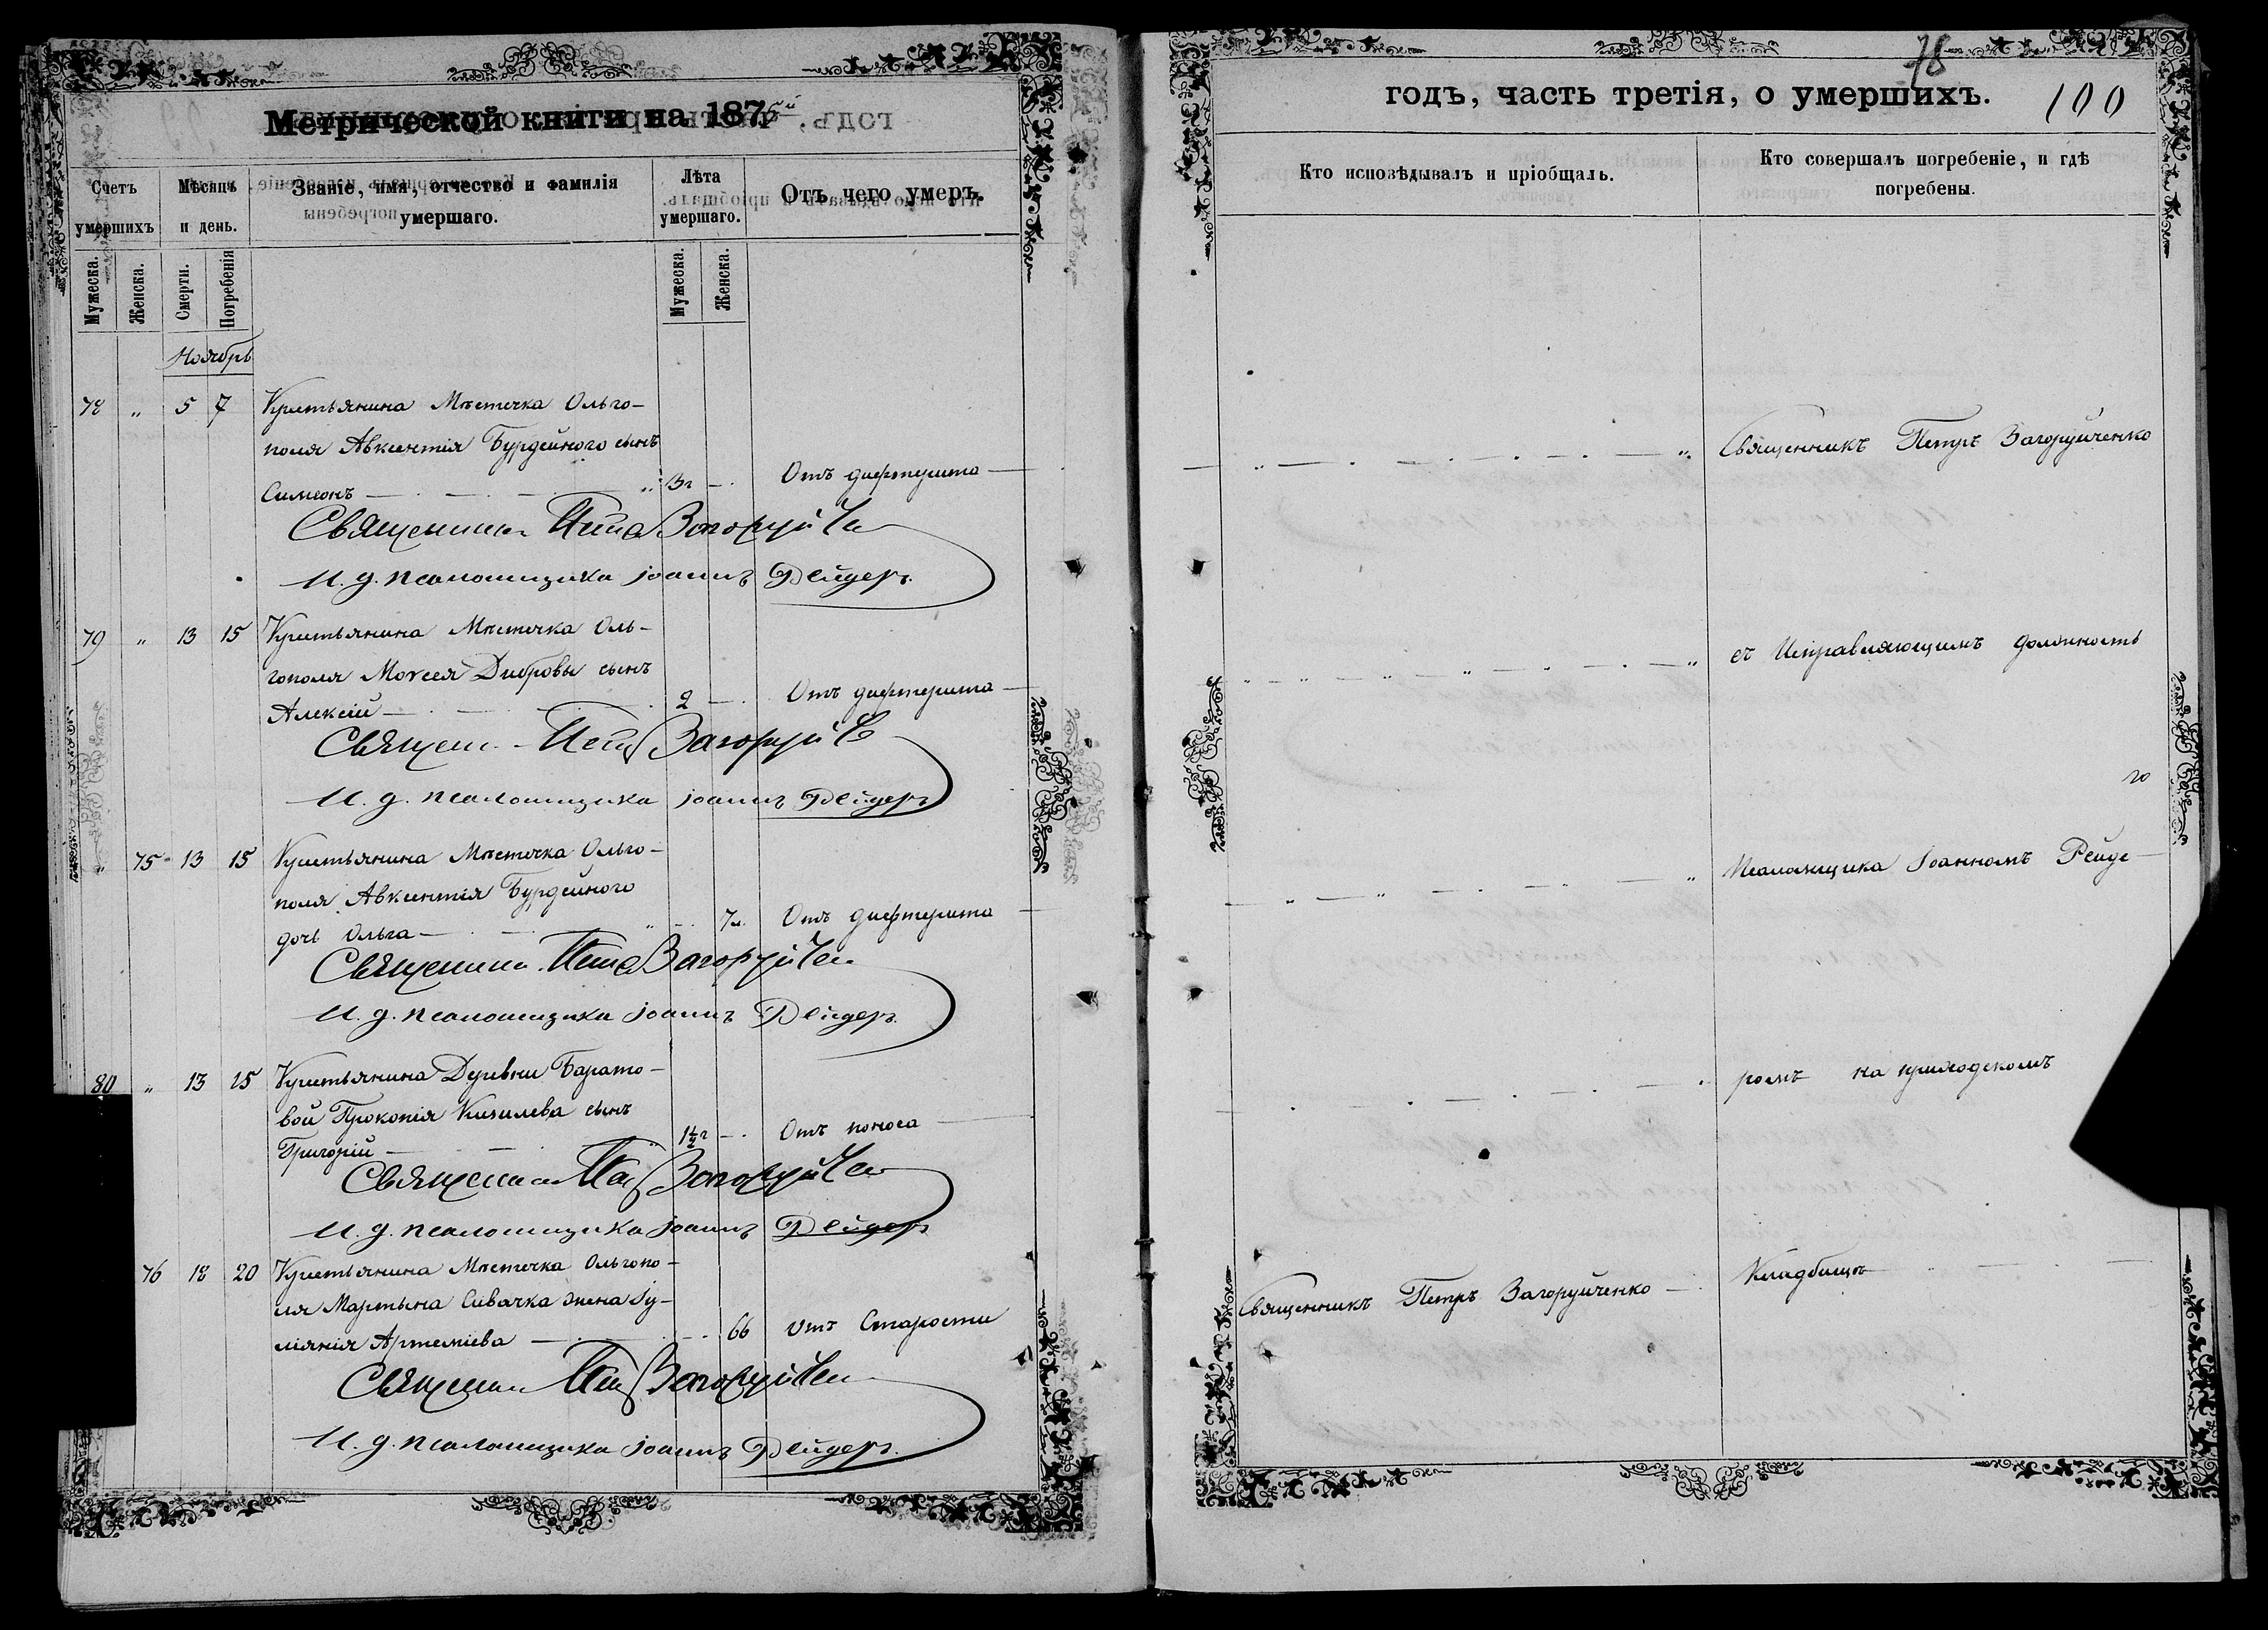 Метрической книги на 1875й
Счетъ умершихъ
Мѣсяцъ и день.
Званіе, имя, отчество и фамилія умершаго.
Лѣта умершаго.
Отъ чего умеръ.
Мужеска.
Женска.
Смерти.
Погребенія
Мужеска.
Женска.
Ноябрь
78 „ 5 7 Крестьянина Мѣстечка Ольго-
поля Авксентія Бурдейного сынъ
Симеонъ 3г Отъ дифтерита
Священникъ Петръ Загоруйче
И. д. псаломщика Іоаннъ Рейдеръ
79 „ 13 15 Крестьянина Мѣстечка Оль-
гополя Моѵсея Дибровы сынъ
Алексій 2 Отъ дифтерита
Священ. Петръ Загоруйч
И. д. псаломщика Іоаннъ Рейдеръ
„ 75 13 15 Крестьянина Мѣстечка Ольго-
поля Авксентія Бурдейного
дочь Ольга 7л. Отъ дифтерита
Священник Петръ Загоруйчен
И. д. псаломщика Іоаннъ Рейдеръ
80 „ 13 15 Крестьянина Деревни Барато-
вой Прокопія Кизилева сынъ
Григорій 1½г Отъ поноса
Священник Петръ Загоруйчен
И. д. псаломщика Іоаннъ Рейдеръ
76 18 20 Крестьянина Мѣстечка Ольгопо-
ля Мартына Сивачка жена Іу-
ліянія Артеміева 66 Отъ Старости
Священ Петръ Загоруйчен
И. д. псаломщика Іоаннъ Рейдеръ
78
годъ, часть третія, о умершихъ. 100
Кто исповѣдывалъ и пріобщалъ.
Кто совершалъ погребеніе, и гдѣ погребены.
Священникъ Петръ Загоруйченко
съ Исправляющимъ должность
го
Псаломщика Іоанномъ Рейде-
ромъ на приходскомъ
Священникъ Петръ Загоруйченко
Кладбищѣ